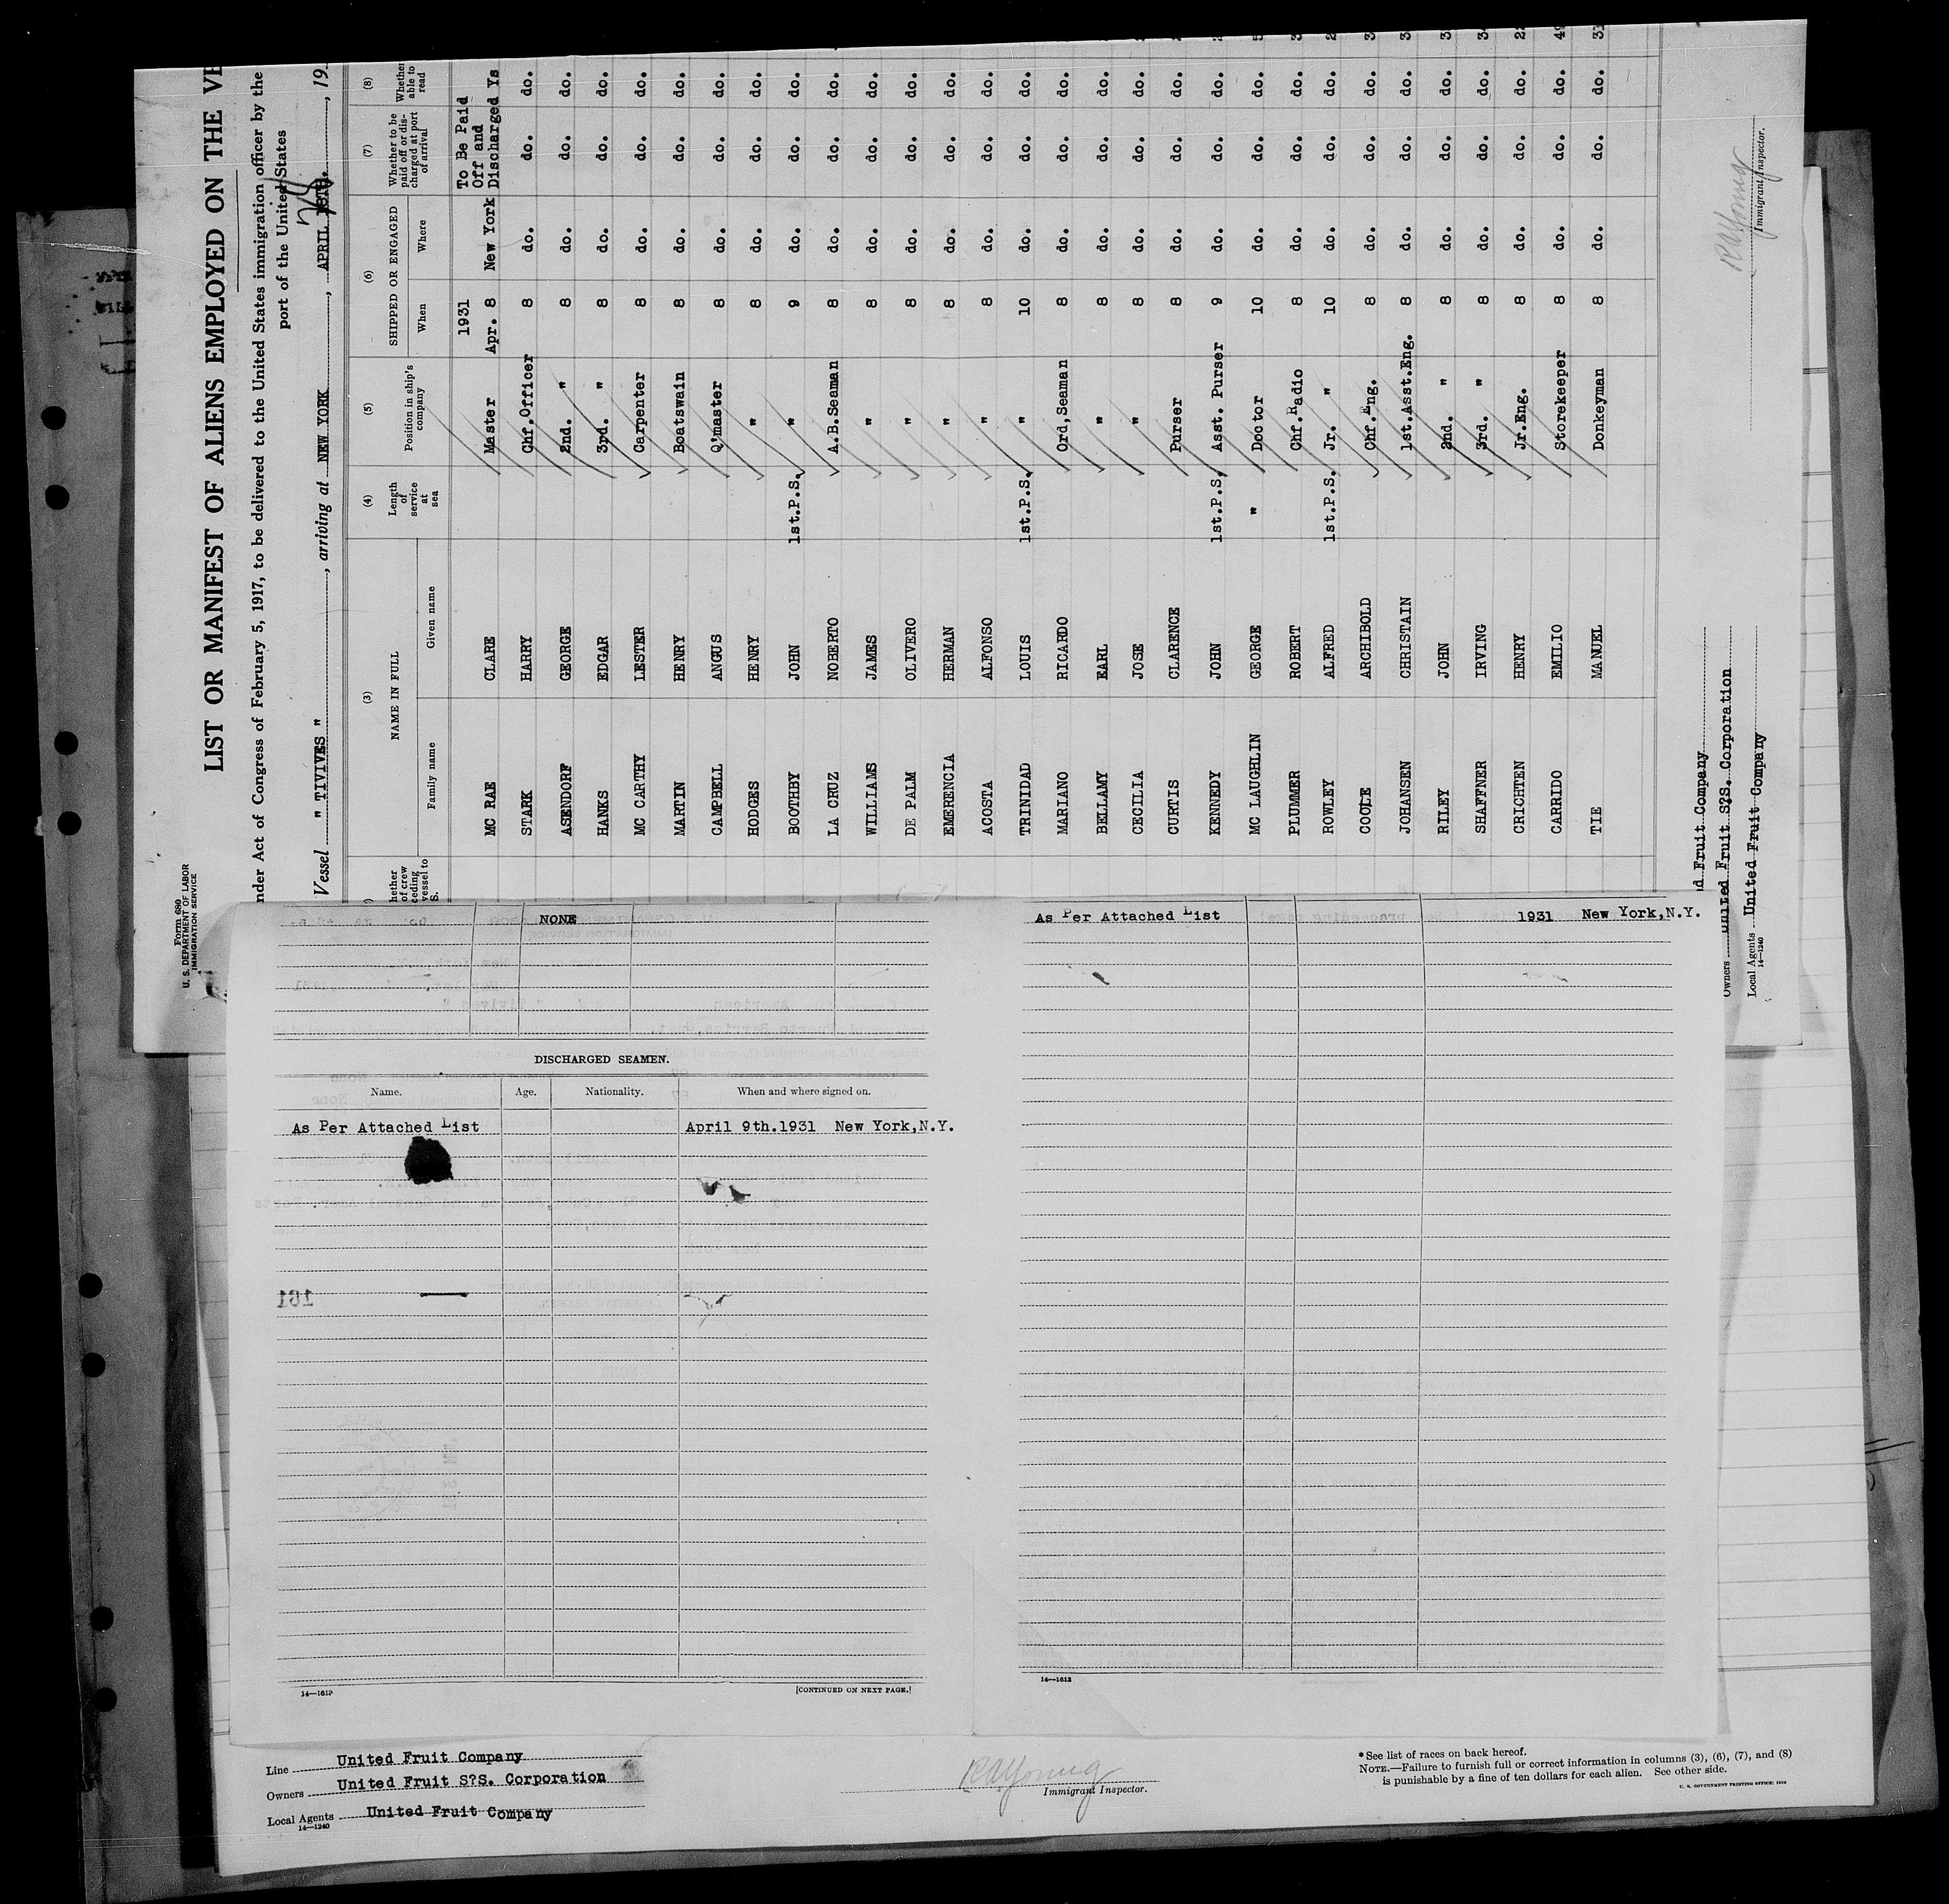 Form 680
U. S. DEPARTMENT OF LABOR
IMMIGRATION SERVICE
LIST OR MANIFEST OF ALIENS EMPLOYED ON THE VE
nder Act of Congress of February 5, 1917, to be delivered to the United States immigration officer by the
port of the United States
Vessel " TIVIVES ", arriving at NEW YORK, APRIL, 19
(3) (4) (5) (6) (7) (8)
NAME IN FULL Length of service at sea Position in ship's company SHIPPED OR ENGAGED Whether to be paid off or discharged at port of arrival Whether able to read
hether of crew ceding vessel to S. Family name Given name When Where
1931 To Be Paid Off and
MC RAE CLARE Master Apr. 8 New York Discharged Ys
STARK HARRY Chf.Officer 8 do. do. do.
ASENDORF GEORGE 2nd. " 8 do. do. do.
HANKS EDGAR 3rd. " 8 do. do. do.
MC CARTHY LESTER Carpenter 8 do. do. do.
MARTIN HENRY Boatswain 8 do. do. do.
CAMPBELL ANGUS Q'master 8 do. do. do.
HODGES HENRY " 8 do. do. do.
BOOTHBY JOHN 1st.P.S. " 9 do. do. do.
LA CRUZ NOBERTO A.B.Seaman 8 do. do. do.
WILLIAMS JAMES " 8 do. do. do.
DE PALM OLIVERO " 8 do. do. do.
EMERENCIA HERMAN " 8 do. do. do.
ACOSTA ALFONSO " 8 do. do. do.
TRINIDAD LOUIS 1st.P.S. " 10 do. do. do.
MARIANO RICARDO Ord,Seaman 8 do. do. do.
BELLAMY EARL " 8 do. do. do.
CECILIA JOSE " 8 do. do. do.
CURTIS CLARENCE Purser 8 do. do. do.
KENNEDY JOHN 1st.P.S. Asst. Purser 9 do. do. do.
MC LAUGHLIN GEORGE " Doctor 10 do. do. do.
PLUMMER ROBERT Chf.Radio 8 do. do. do.
ROWLEY ALFRED 1st.P.S. Jr. " 10 do. do. do.
COOLE ARCHIBOLD Chf.Eng. 8 do. do. do.
JOHANSEN CHRISTAIN 1st.Asst.Eng. 8 do. do. do.
RILEY JOHN 2nd. " 8 do. do. do.
SHAFFNER IRVING 3rd. " 8 do. do. do.
CRICHTEN HENRY Jr.Eng. 8 do. do. do.
CARRIDO EMILIO Storekeeper 8 do. do. do.
TIE MANUEL Donkeyman 8 do. do. do.
d Fruit Company
Owners United Fruit S?S. Corporation
Local Agents United Fruit Company
14—1240
RA Young
Immigrant Inspector.
NONE
DISCHARGED SEAMEN.
Name. Age. Nationality. When and where signed on.
As Per Attached List April 9th.1931 New York,N.Y.
161
14—1613
[CONTINUED ON NEXT PAGE.]
As Per Attached List 1931 New York,N.Y.
14—1613
Line United Fruit Company
Owners United Fruit S?S. Corporation
Local Agents United Fruit Company
14—1240
RA Young
Immigrant Inspector.
* See list of races on back hereof.
NOTE.—Failure to furnish full or correct information in columns (3), (6), (7), and (8)
is punishable by a fine of ten dollars for each alien. See other side.
U. S. GOVERNMENT PRINTING OFFICE: